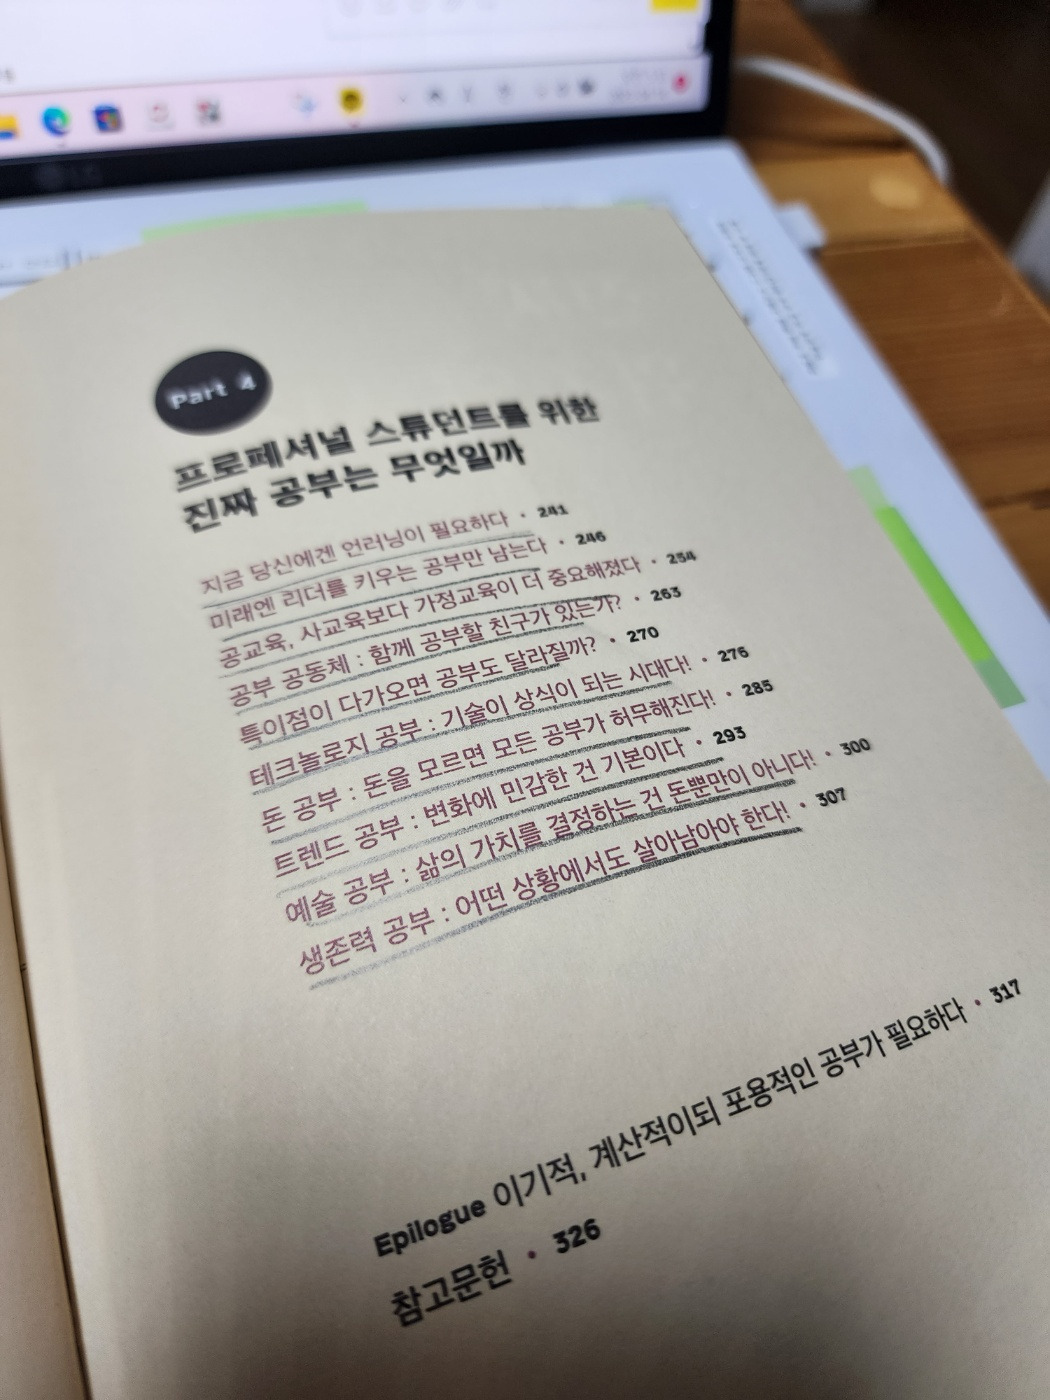 Part 4
프로페셔널 스튜던트를 위한
진짜 공부는 무엇일까
지금 당신에겐 언러닝이 필요하다 • 241
미래엔 리더를 키우는 공부만 남는다 • 246
공교육, 사교육보다 가정교육이 더 중요해졌다 • 254
공부 공동체 : 함께 공부할 친구가 있는가? • 263
특이점이 다가오면 공부도 달라질까? • 270
테크놀로지 공부 : 기술이 상식이 되는 시대다! • 276
돈 공부 : 돈을 모르면 모든 공부가 허무해진다! • 285
트렌드 공부 : 변화에 민감한 건 기본이다 • 293
예술 공부 : 삶의 가치를 결정하는 건 돈뿐만이 아니다! • 300
생존력 공부 : 어떤 상황에서도 살아남아야 한다! • 307
Epilogue 이기적, 계산적이되 포용적인 공부가 필요하다 • 317
참고문헌 • 326